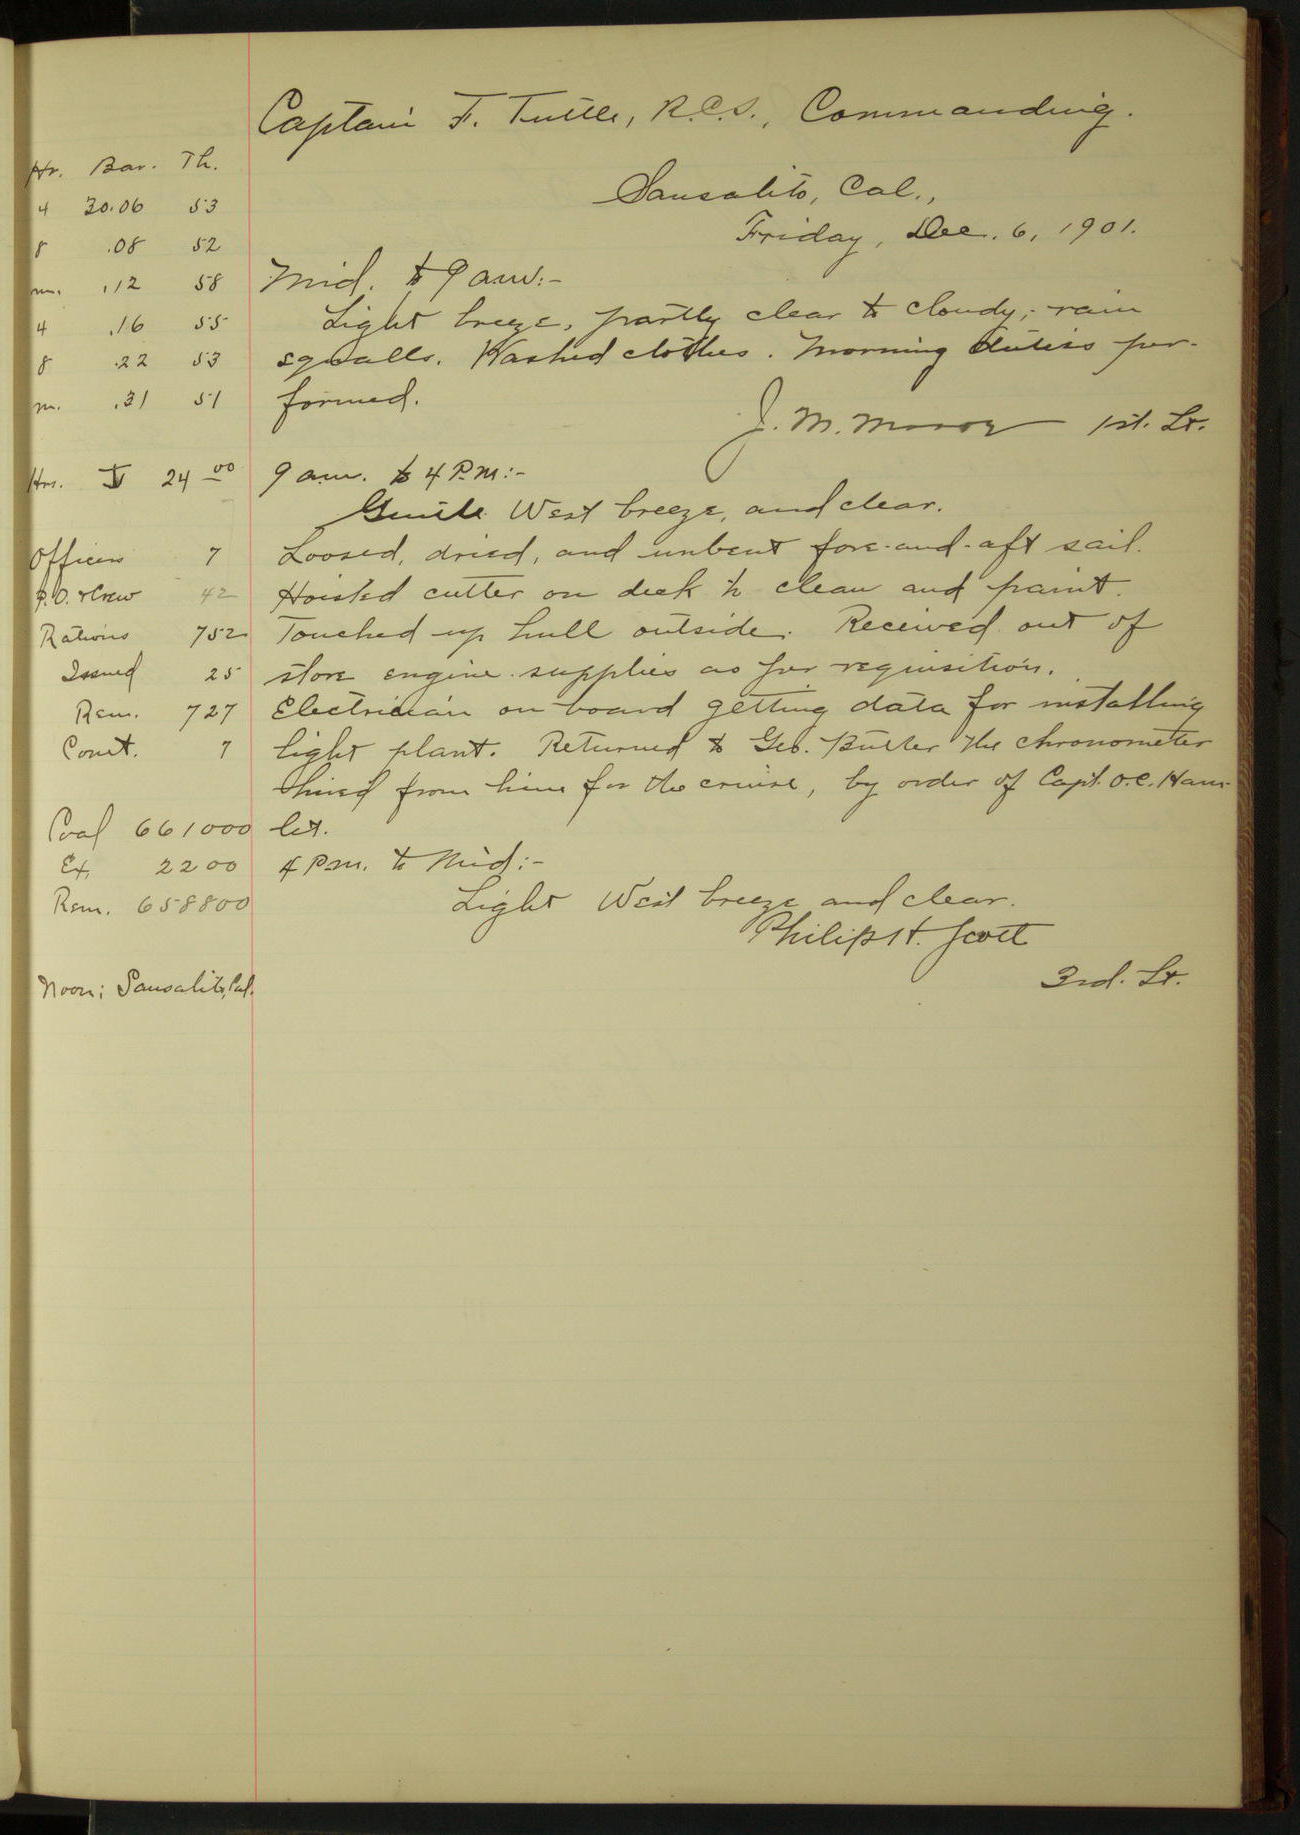 Captain F. Tuttle, R.C.S., Commanding.
Hr. Bar. Th.
4 30.06 53
8 .08 52
m. .12 58
4 .16 55
8 .22 53
m. .31 51
Hrs. 24 00
Officers 7
P.O. & Crew 42
Rations 752
Issued 25
Rem. 727
Comt. 7
Coal 661000
Ex. 2200
Rem. 658800
Noon: Sausalito, Cal.
Sausalito, Cal.,
Friday, Dec. 6, 1901.
Mid. to 9 am:-
Light breeze, partly clear to cloudy; rain
squalls. Washed clothes. Morning duties per-
formed.
J. M. Moore 1st. Lt.
9 am. to 4 P.M:-
Gentle West breeze, and clear.
Loosed, dried, and unbent fore-and-aft sail.
Hoisted cutter on deck to clean and paint.
Touched up hull outside. Received out of
store engine supplies as per requisition.
Electrician on board getting data for installing
light plant. Returned to Geo. Butler the chronometer
hired from him for the cruise, by order of Capt. O.C. Ham-
let.
4 P.m. to Mid:-
Light West breeze and clear.
Philip H. Scott
3rd. Lt.